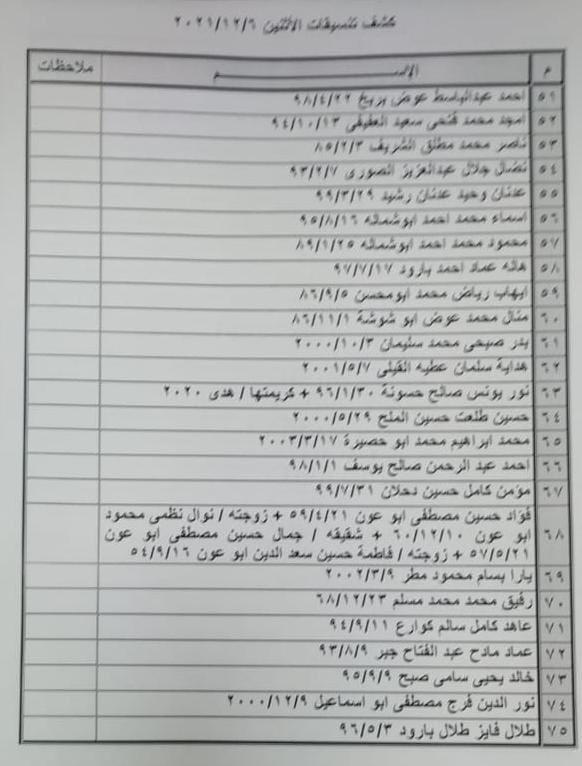 كشف تنسيقات الاثنين ٢٠٢١/١٢/٦
م الإســـــم ملاحظات
٥١ احمد عبدالباسط عوض بربخ ٩٨/٤/٢٢
٥٢ امجد محمد فتحى سعيد العفيفى ٩٤/١٠/١٣
٥٣ ناصر محمد مطلق الشريف ٨٥/٢/٣
٥٤ نضال جلال عبدالعزيز الصورى ٩٣/٢/٧
٥٥ عدنان وحيد عدنان رشيد ٩٩/٣/٢٩
٥٦ اسماء محمد احمد ابوشماله ٩٥/٨/١٦
٥٧ محمود محمد احمد ابوشماله ٨٩/١/٢٥
٥٨ هاله عماد احمد بارود ٩٧/٧/١٧
٥٩ ايهاب رياض محمد ابومحسن ٨٦/٩/٥
٦٠ منال محمد عوض ابو شوشة ٨٦/١١/١
٦١ بدر صبحى محمد سليمان ٢٠٠٠/١٠/٣
٦٢ هداية سلمان عطيه القيلى ٢٠٠١/٥/٧
٦٣ نور يونس صالح حسونة ٩٦/١/٣٠ + كريمتها / هدى ٢٠٢٠
٦٤ حسين طلعت حسين الملح ٢٠٠٠/٥/٢٩
٦٥ محمد ابراهيم محمد ابو حصيرة ٢٠٠٣/٣/١٧
٦٦ احمد عبد الرحمن صالح يوسف ٩٨/١/١
٦٧ مؤمن كامل حسين دحلان ٩٩/٧/٣١
٦٨ فؤاد حسين مصطفى ابو عون ٥٩/٤/٢١ + زوجته / نوال نظمى محمود
ابو عون ٦٠/١٢/١٠ + شقيقه / جمال حسين مصطفى ابو عون
٥٧/٥/٢١ + زوجته / فاطمة حسين سعد الدين ابو عون ٥٤/٩/١٦
٦٩ يارا بسام محمود مطر ٢٠٠٢/٣/٩
٧٠ رفيق محمد محمد مسلم ٦٨/١٢/٢٣
٧١ عاهد كامل سالم كوارع ٩٤/٩/١١
٧٢ عماد مادح عبد الفتاح جبر ٩٣/٨/٩
٧٣ خالد يحيى سامى صبح ٩٥/٩/٩
٧٤ نور الدين فرج مصطفى ابو اسماعيل ٢٠٠٠/١٢/٩
٧٥ طلال فايز طلال بارود ٩٦/٥/٣